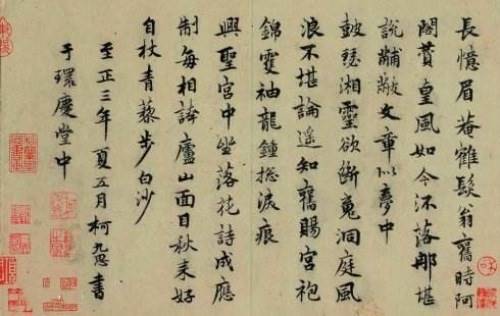 長憶眉菴鶴髮翁舊時阿
閣賛皇風如今流落那堪
說黼黻文章似夢中
鼓瑟湘靈欲斷魂洞庭風
浪不堪論遙知舊賜宮袍
錦雙袖龍鍾搵淚痕
興聖宮中坐落花詩成應
制每相誇廬山面目秋来好
自杖青藜步白沙
至正三年夏五月柯九思書
于環慶堂中